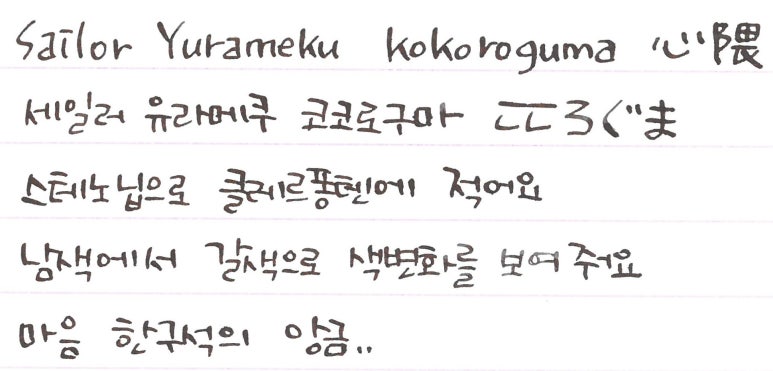 Sailor Yurameku kokoroguma 心隈
세일러 유라메쿠 코코로구마 こころぐま
스테노닙으로 클레르퐁텐에 적어요
남색에서 갈색으로 색변화를 보여 주어요
마음 한구석의 앙금..